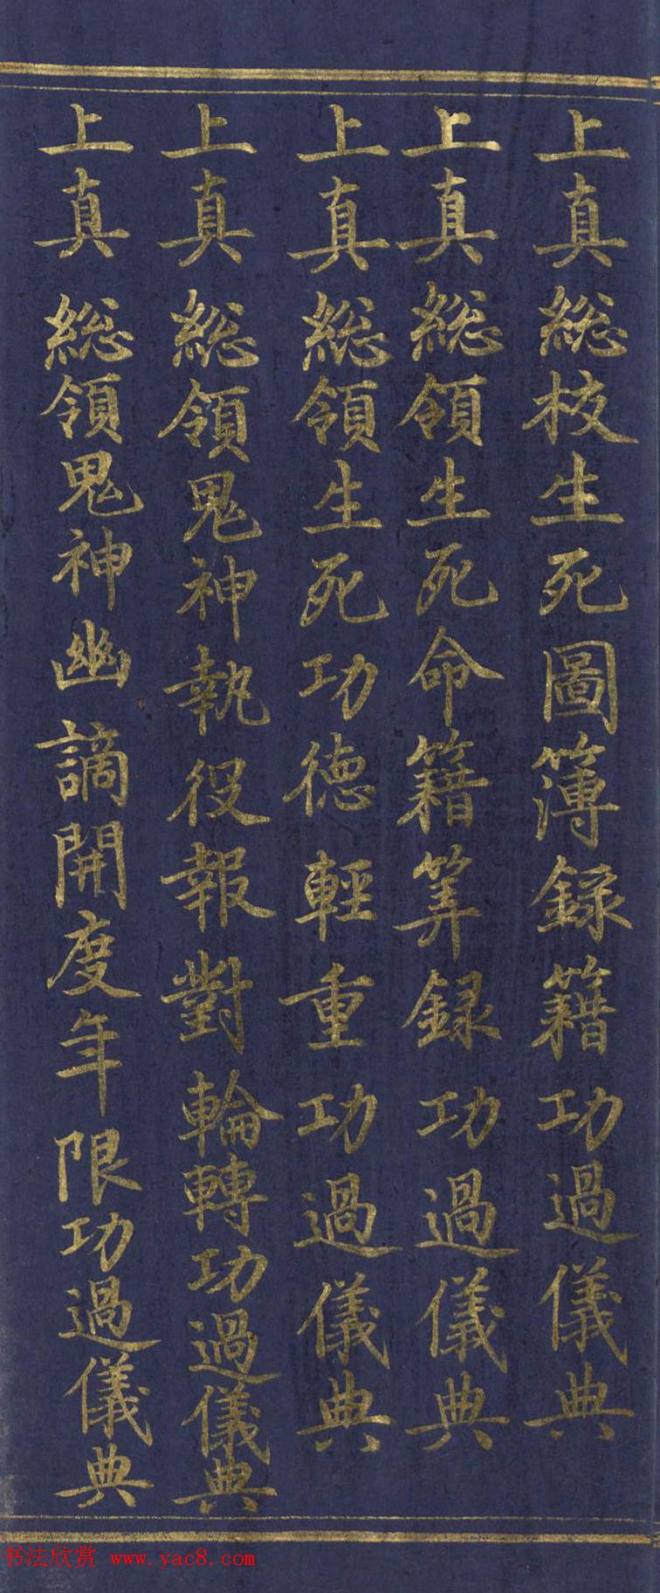 上真総校生死圖簿録籍功過儀典
上真総領生死命籍筭録功過儀典
上真総領生死功徳輕重功過儀典
上真総領鬼神執役報對輪轉功過儀典
上真総領鬼神幽謫開度年限功過儀典
书法欣赏 www.yac8.com